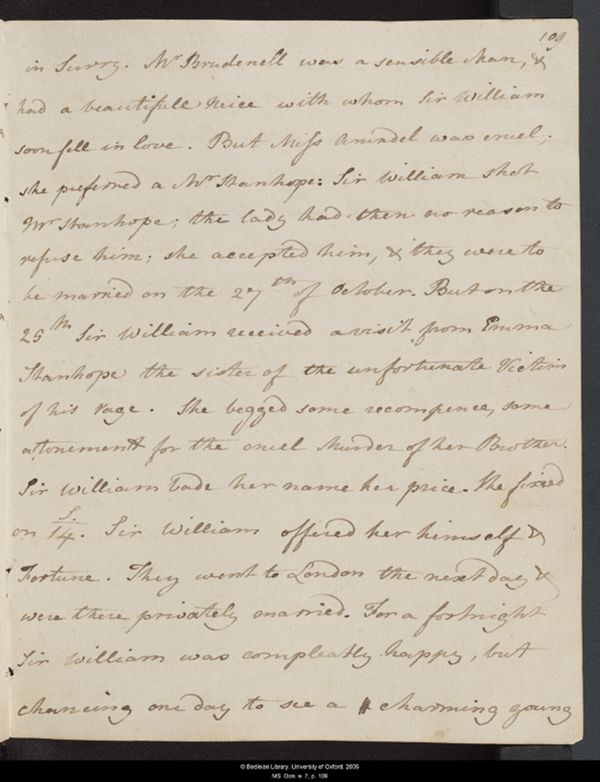 109
in Surry. Mr Brudenell was a sensible Man, &
had a beautifull Neice with whom Sir William
soon fell in love. But Miss Arundel was cruel;
she preferred a Mr Stanhope: Sir William shot
Mr Stanhope; the lady had then no reason to
refuse him; she accepted him, & they were to
be married on the 27th of October. But on the
25th Sir William received a visit from Emma
Stanhope the sister of the unfortunate Victim
of his rage. She begged some recompence, some
atonement for the cruel Murder of her Brother.
Sir William bade her name her price. She fixed
on 14s. Sir William offered her himself &
Fortune. They went to London the next day &
were there privately married. For a fortnight
Sir William was compleatly happy, but
chancing one day to see a charming young
© Bodleian Library, University of Oxford, 2006
MS. Don. e. 7, p. 109